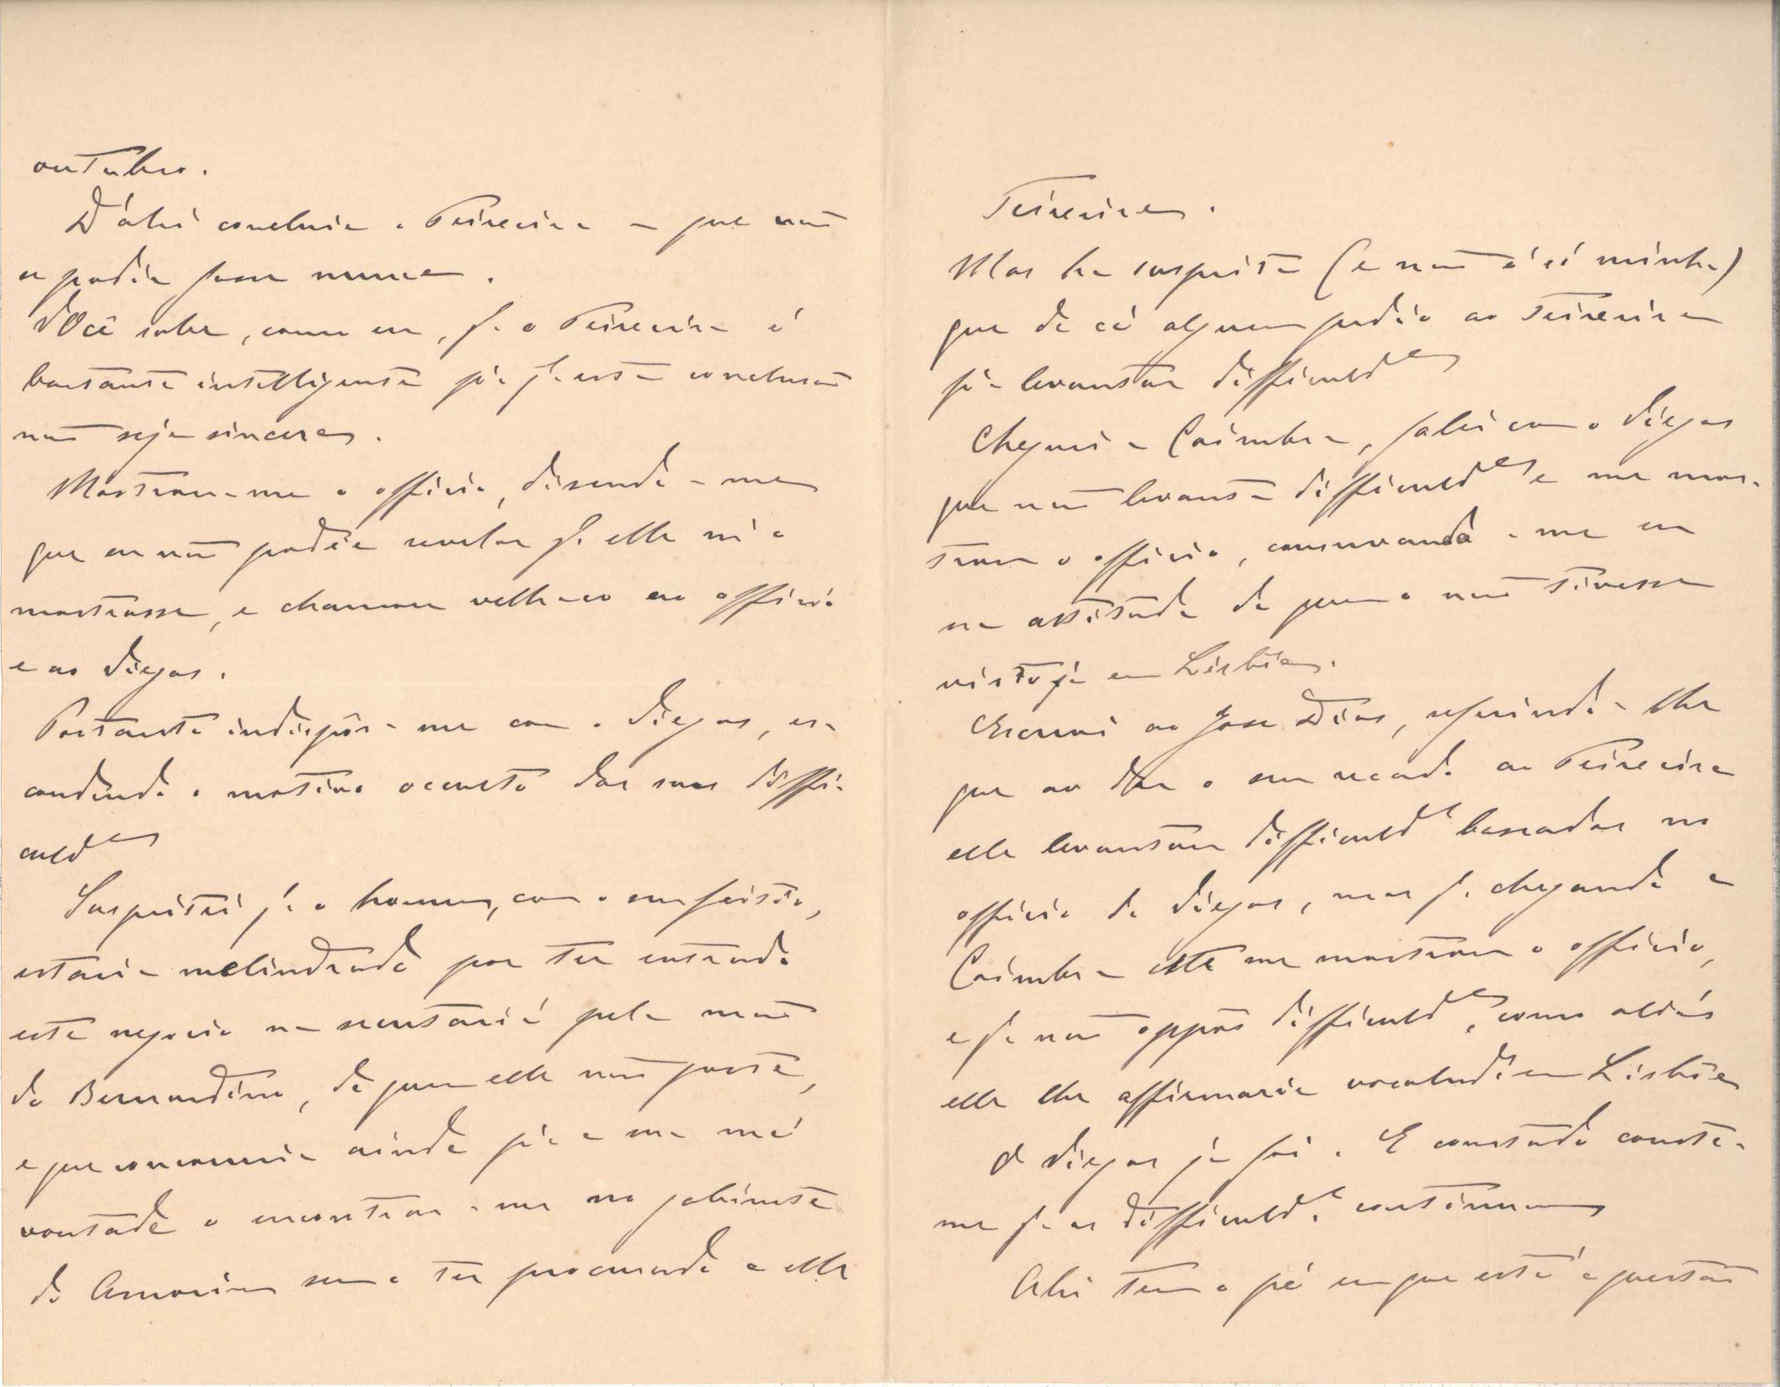 outubro.
D'ahi concluia o Teixeira - que não
se podia fazer nunca.
Você sabe, como eu, q. o Teixeira é
bastante intelligente pª q. esta conclusão
não seja sincera.
Mostrou-me o officio, dizendo-me
que eu não podia revelar q. elle m'o
mostrasse, e chamou velhaco ao officio
e ao Diegas.
Portanto indispôs-me com o Diegas, es-
condendo o motivo occulto das suas diffi-
culd.es
Suspeitei q. o homem, com o seu feitio,
estaria melindrado por ter entrado
este negocio na secretaria pela mão
do Bernardino, de quem elle não gosta,
e que concorreria ainda pª a sua má
vontade o encontrar-me no gabinete
do Amorim sem o ter procurado a elle
Teixeira.
Mas ha suspeita (e não é só minha)
que de cá alguem pediu ao Teixeira
pª levantar difficuld.es
Cheguei a Coimbra, falei com o Diegas
que não levanta difficuld.es e me mos-
trou o officio, conservando-me eu
na attitude de quem o não tivesse
visto já em Lisboa.
Escrevi ao José Dias, referindo-lhe
que ao dar o seu recado ao Teixeira
elle levantou difficuld.es baseadas no
officio do Diegas, mas q. chegando a
Coimbra este me mostrou o officio,
e q. não oppõs difficuld.es, como aliás
elle lhe affirmaria voltando a Lisboa
O Diegas já foi. E contudo consta-
me q. as difficuld.es continuam
Ahi tem o pé em que está a questão